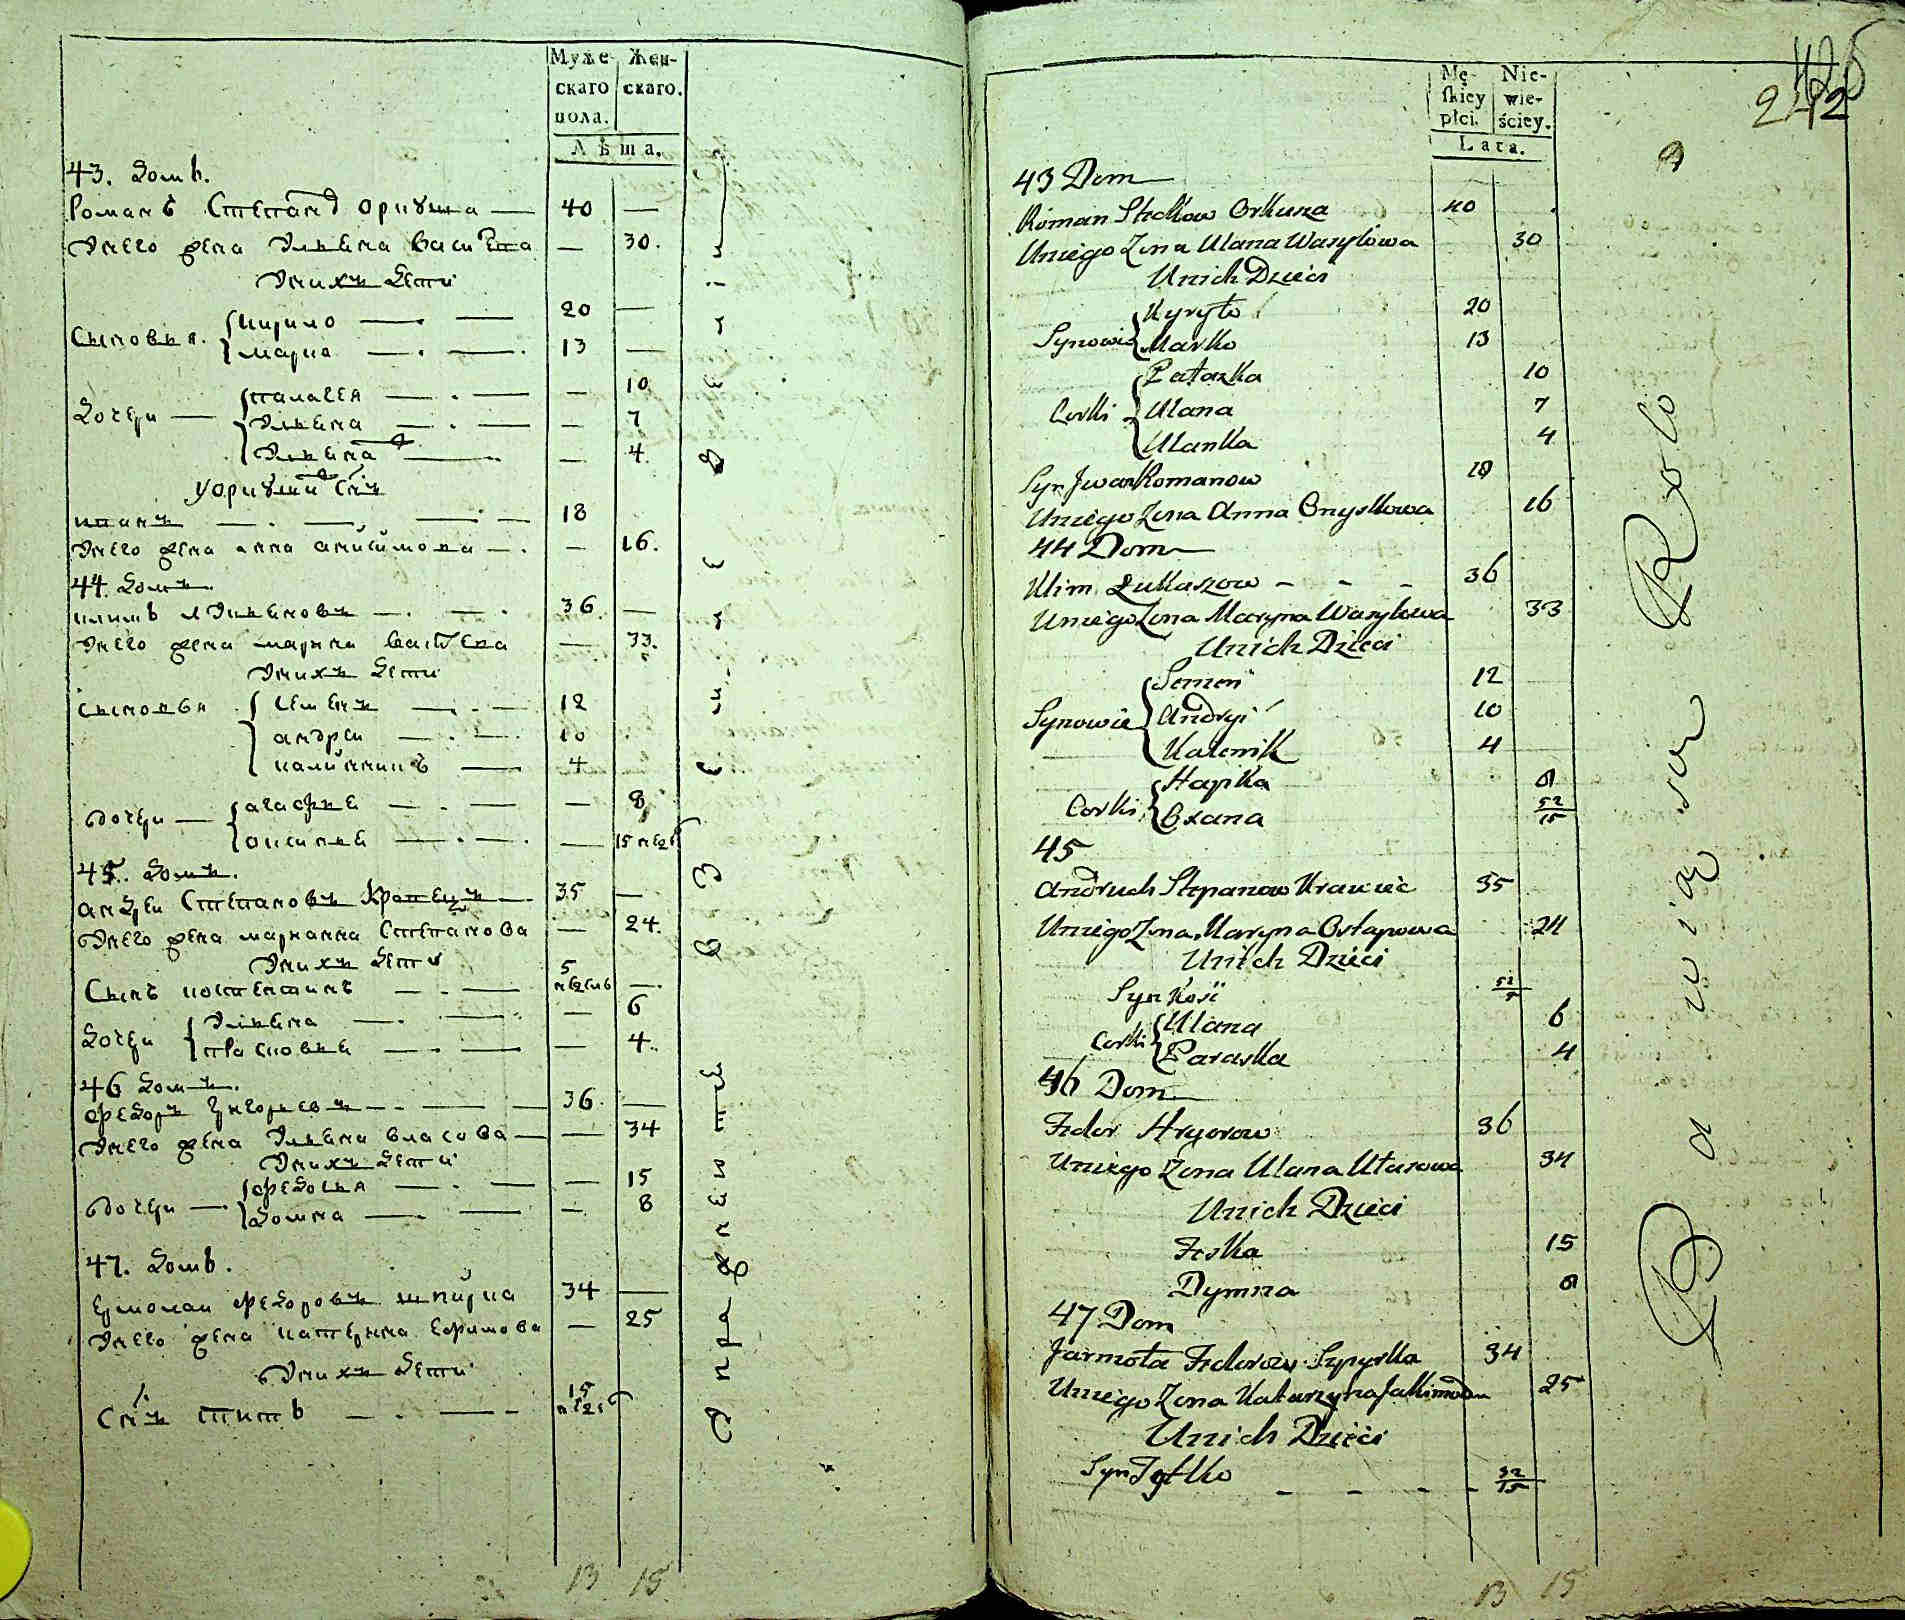 Муже-
скаго
пола.
Жен-
скаго.
Лѣта.
43. Домъ.
Романъ Степанов Оркуша — 40 —
Унего жена Ульяна Васильева — 30.
Унихъ Дети
Сыновья. Кирило — 20 —
Марко — 13 —
Дочери — Палагея — 10
Ульяна — 7
Ульяна — 4.
У Оркуши Сынъ
Иванъ — 18
Унего жена Анна Анисимова — 16.
44 Домъ.
Климъ Лукьяновъ — 36 —
Унего жена Марина Васильева — 33.
Унихъ Дети
Сыновья Семенъ — 12
Андрей — 10
Калинникъ — 4
Дочери — Агафия — 8
Оксиния — 15 недель
45. Домъ.
Андрей Степановъ Кравецъ — 35 —
Унего жена Марианна Степанова — 24.
Унихъ Дети
Сынъ Костентинъ — 5 недель —
Дочери Ульяна — 6
Прасковия — 4.
46 Домъ.
Федоръ Григорьевъ — 36 —
Унего жена Ульяна Власова — 34
Унихъ Дети
Дочери — Федосья — 15
Домна — 8
47. Домъ.
Ермолай Федоровъ Шпирка 34 —
Унего жена Катерина Ефимова — 25
Унихъ Дети
Сынъ Титъ — 15 недель
13 15
Mę-
skiey
płci.
Nie-
wie-
ściey.
Lata.
242
43 Dom
Roman Steckow Orkusza 40
Uniego Zona Ulana Wasylowa 30
Unich Dzieci
Synowie Kyryło 20
Marko 13
Corki Pałazka 10
Ulana 7
Ulanka 4
Syn Jwan Romanow 18
Uniego Zona Anna Onyskowa 16
44 Dom
Klim Łukaszow - - - 36
Uniego Zona Maryna Wasylowa 33
Unich Dzieci
Synowie Semen 12
Andryi 10
Kalenik 4
Corki Hapka 8
Oxana 52/15
45
Andruch Stepanow Krawiec 35
Uniego Zona Maryna Ostapowa 24
Unich Dzieci
Syn Kosť 52/5
Corki Ulana 6
Paraska 4
46 Dom
Fedor Hryorow 36
Uniego Zona Ulana Ułasowa 34
Unich Dzieci
Feska 15
Dymna 8
47 Dom
Jarmoła Fedorow Szpyrka 34
Uniego Zona Katarzyna Jakimowa 25
Unich Dzieci
Syn Tytko - - - - 52/15
13 15